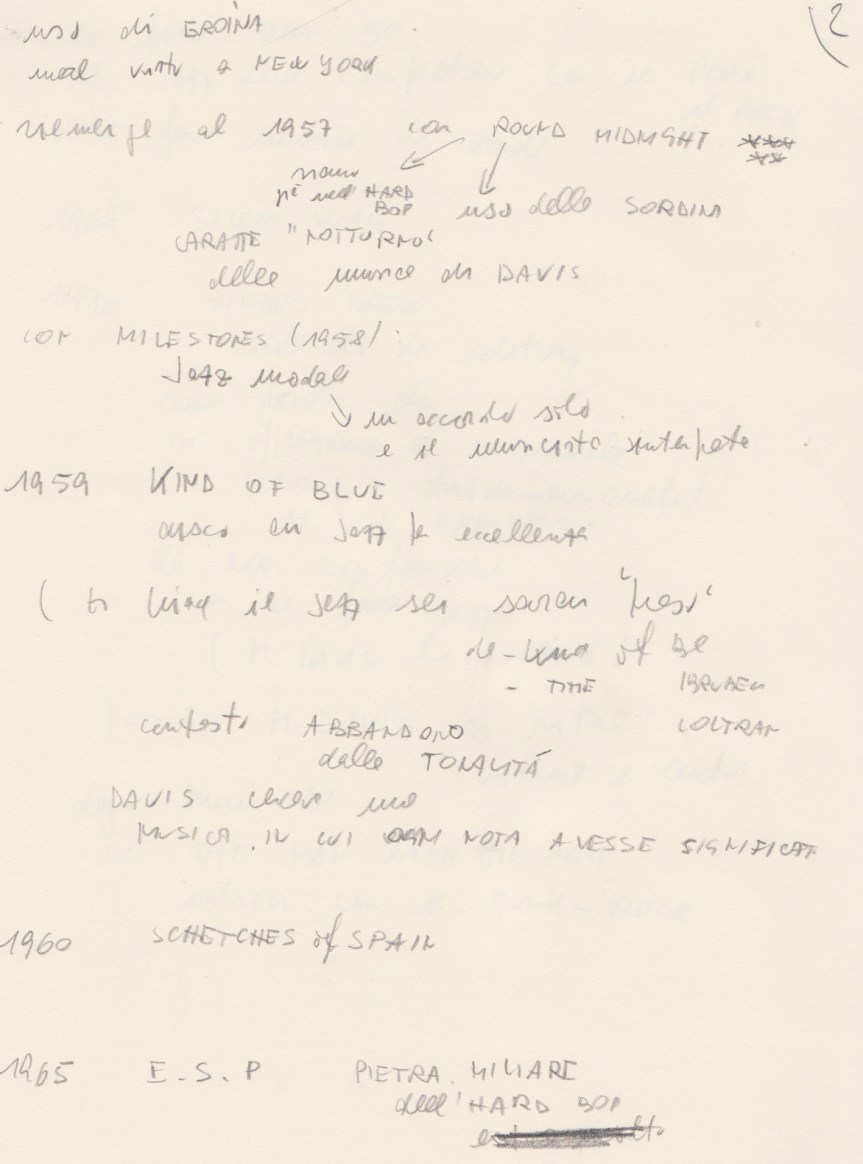 2
uso di EROINA
mal visto a NEW YORK
riemerge al 1957 con ROUND MIDNIGHT *****
siamo
già nell' HARD
BOP
uso delle SORDINA
CARATTE "NOTTURNO"
delle musica di DAVIS
con MILESTONES (1958)
Jazz modale
un accordo solo
e il musicista interpreta
1959 KIND OF BLUE
disco di Jazz per eccellenza
il Jazz
of
- TIME BRUBECK
contesto ABBANDONO COLTRAN
dalle TONALITÁ
DAVIS una
MUSICA IN CUI OGNI NOTA AVESSE SIGNIFICAT
1960 SCHETCHES of SPAIN
1965 E.S.P PIETRA MILIARE
dell'HARD BOP